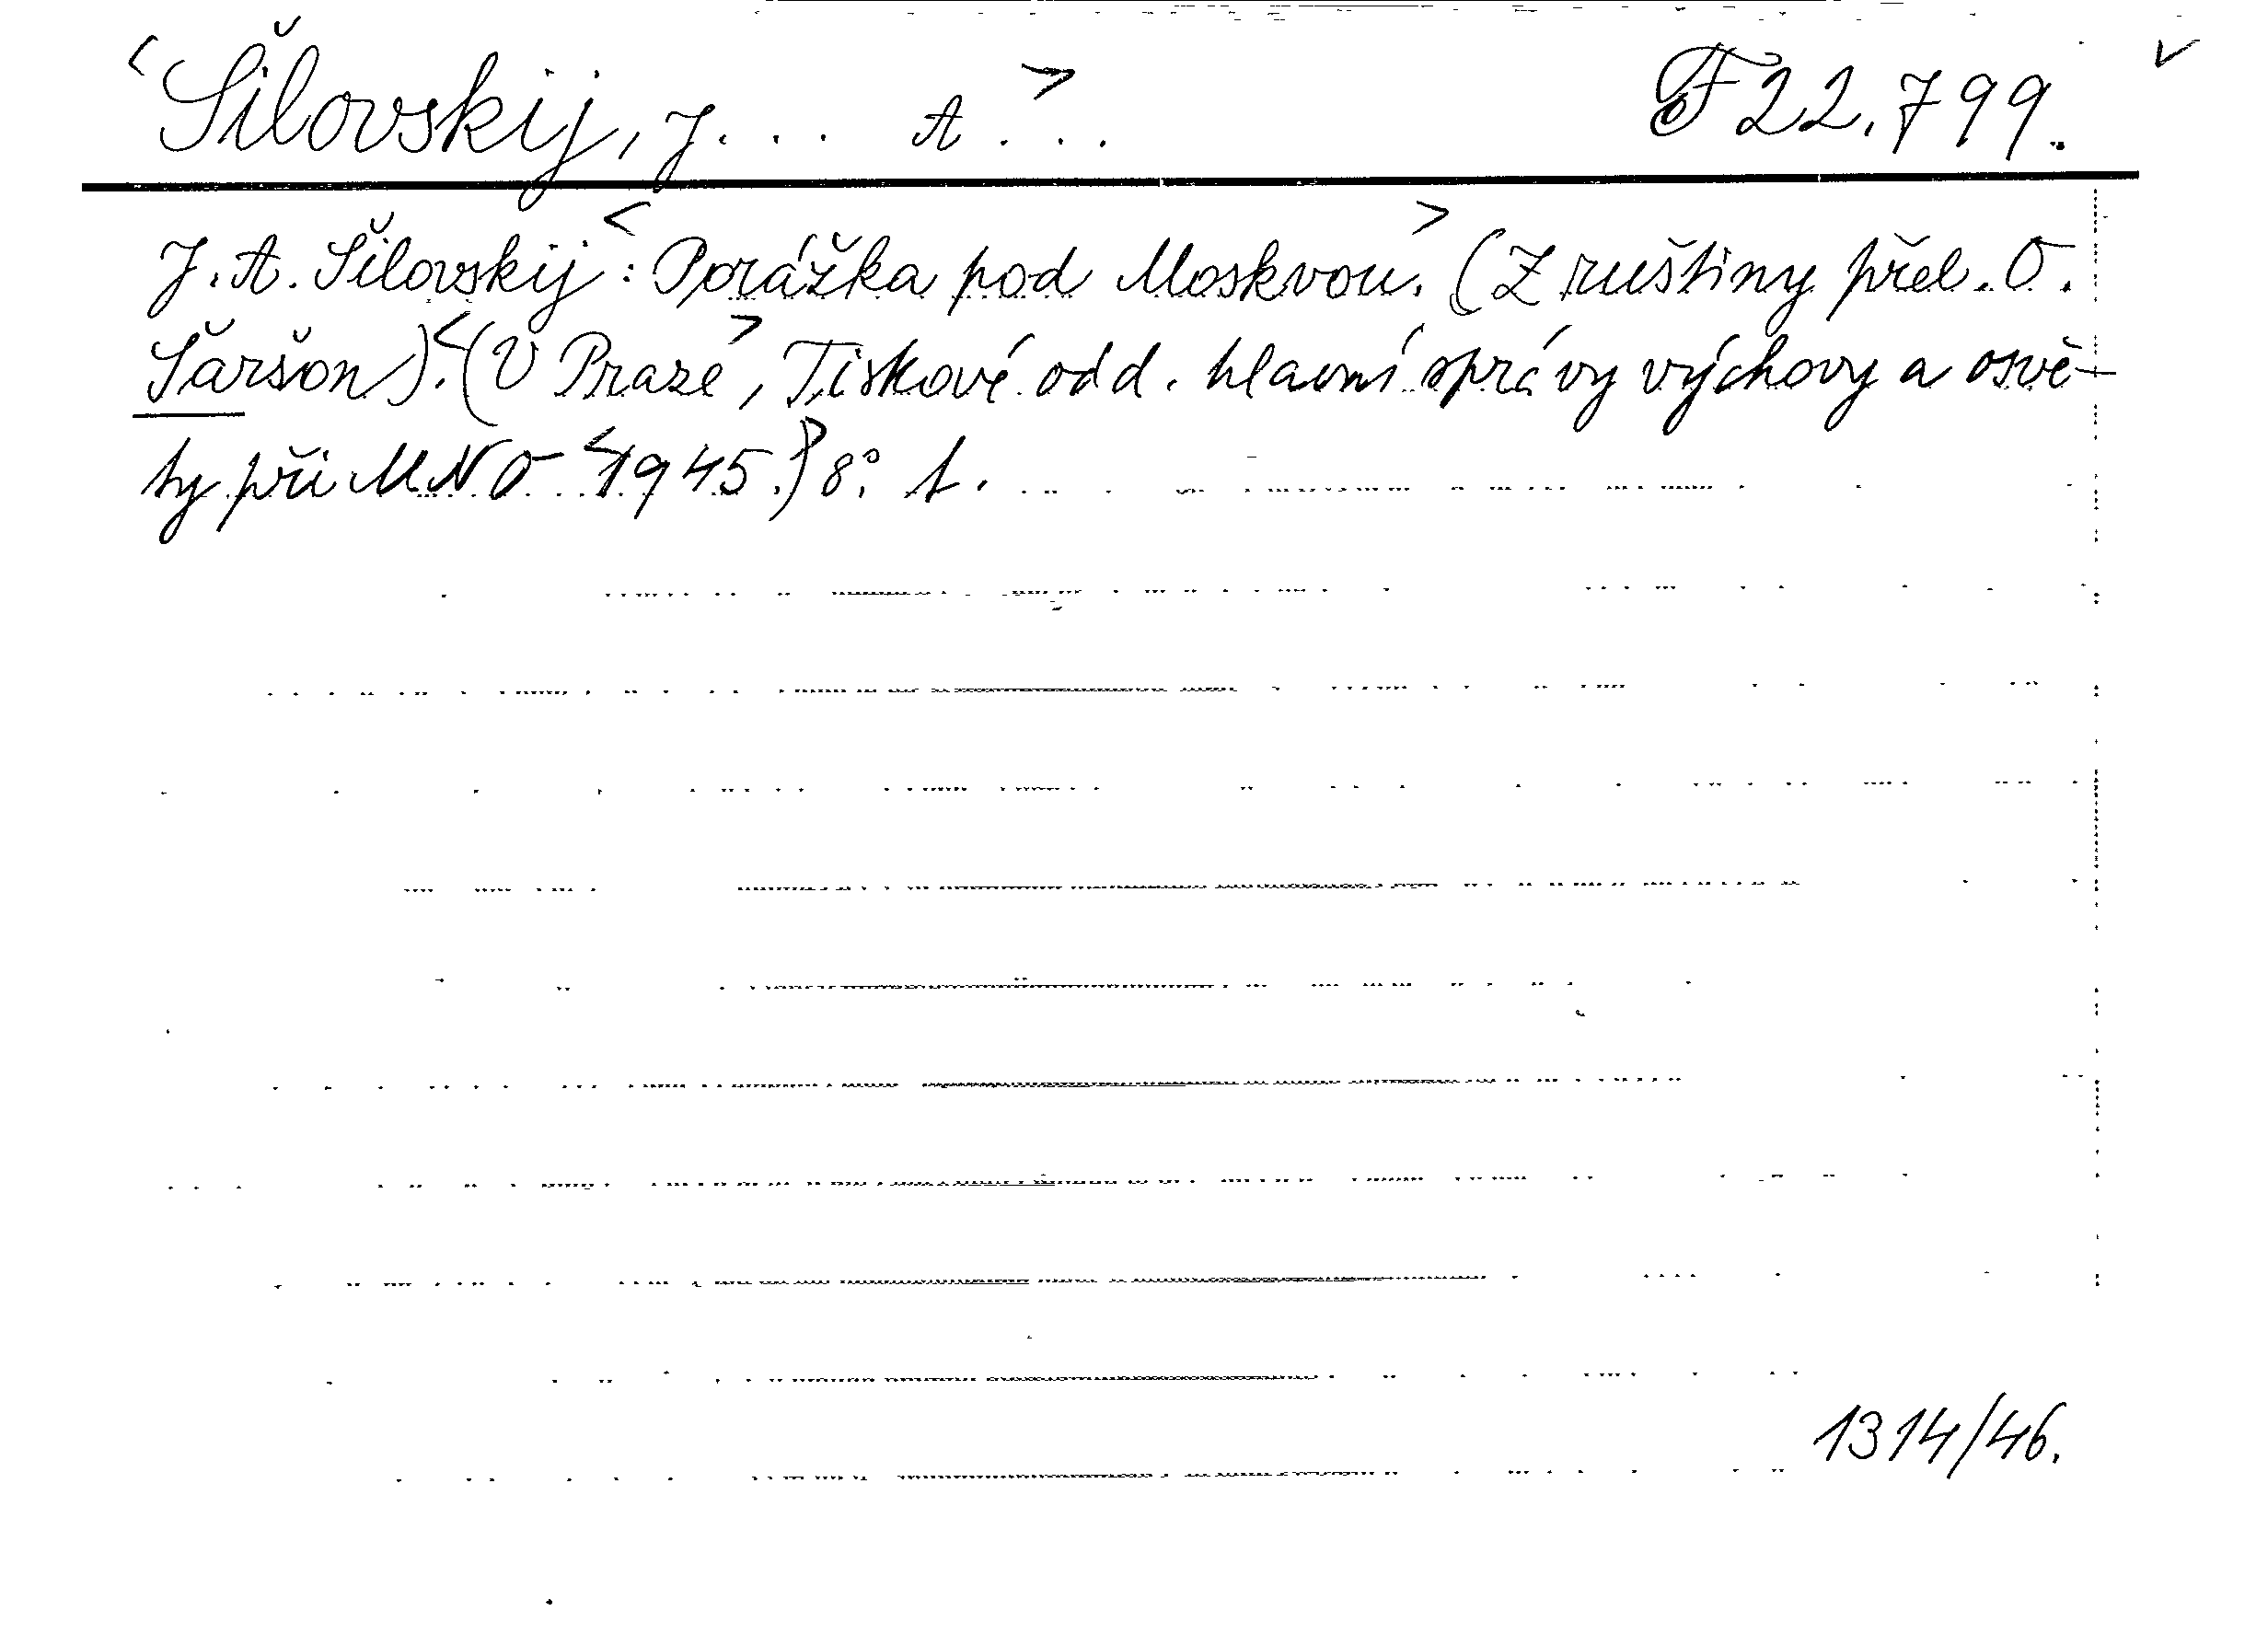 <Šilovskij, J... A...> F 22.799.
J. A. Šilovskij: <Porážka pod Moskvou.> (Z ruštiny přel. O.
Šaršon). <(V Praze>, Tiskové odd. hlavní správy výchovy a osvě-
ty při MNO <1945.)> 8°. t.
1314/46.